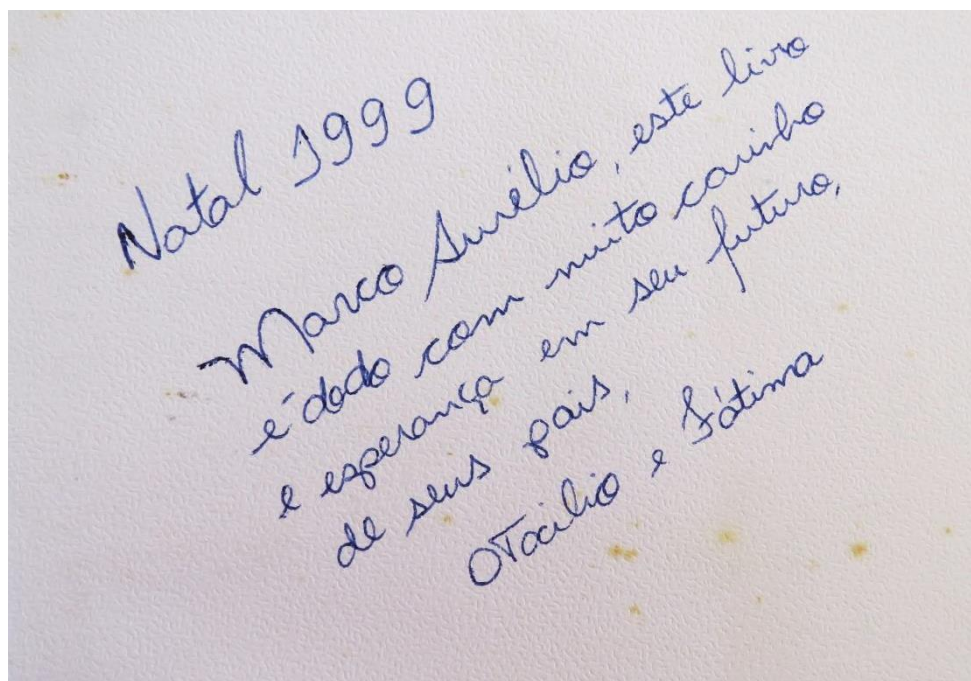 Natal 1999
Marco Aurélio, este livro
é dado com muito carinho
e esperança em seu futuro,
de seus pais,
Otacílio e Fátima